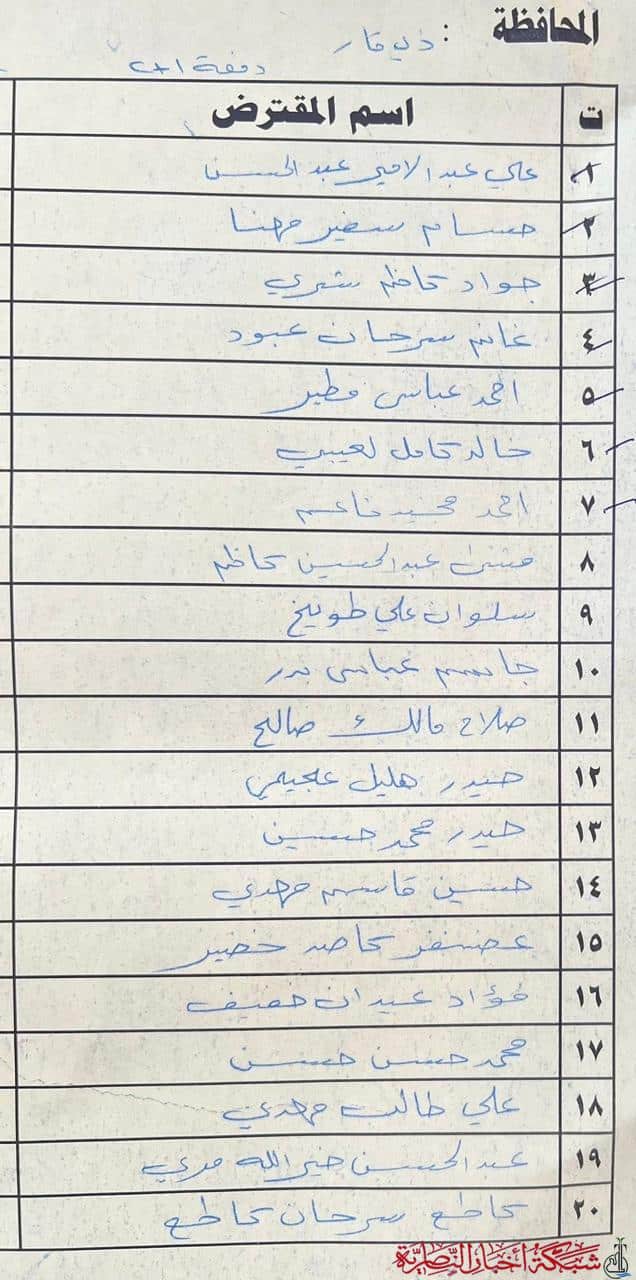 المحافظة : ذي قار
دفعة ٢+١
ت اسم المقترض
١ علي عبد الامير عبد الحسن
٢ حسام سفير مهنا
٣ جواد كاظم شري
٤ غانم سرحان عبود
٥ احمد عباس مطير
٦ خالد كامل لعيبي
٧ احمد محيسد
٨ مثنى عبد الحسين كاظم
٩ سلوان علي طويخ
١٠ جاسم عباس بدر
١١ صلاح مالك صالح
١٢ حيدر هليل عجيمي
١٣ حيدر محمد حسين
١٤ حسين قاسم مهدي
١٥ غضنفر كاصد خضير
١٦ فؤاد عيدان خفيف
١٧ محمد حسن حسين
١٨ علي طالب مهدي
١٩ عبد الحسن خير الله مري
٢٠ كاطع سرحان كاطع
شبكة أخبار الناصرية